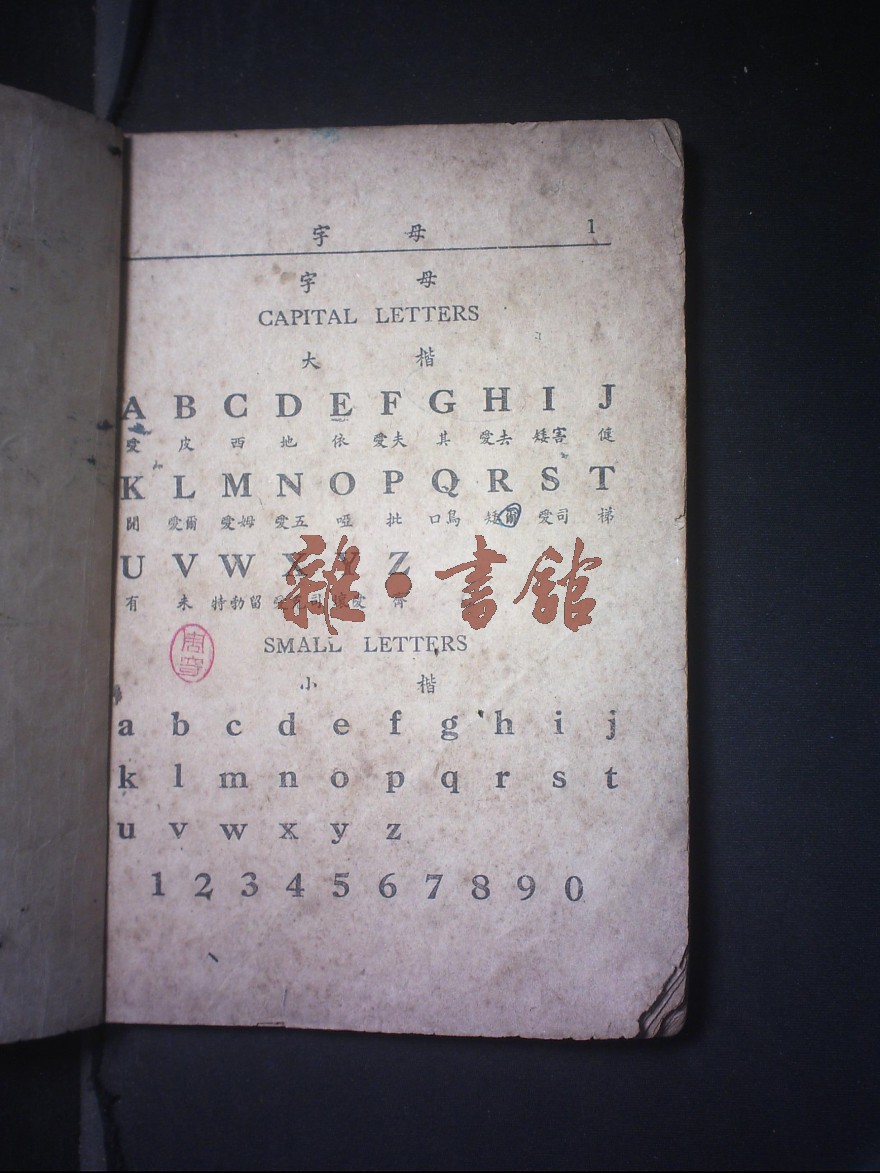 字 母 1
字 母
CAPITAL LETTERS
大 楷
A B C D E F G H I J
愛 皮 西 地 依 愛夫 其 愛去 矮害 健
K L M N O P Q R S T
開 愛爾 愛姆 愛五 啞 批 口烏 矮爾 愛司 梯
U V W X Y Z
有 未 特勃留
雜·書館
SMALL LETTERS
小 楷
a b c d e f g h i j
k l m n o p q r s t
u v w x y z
1 2 3 4 5 6 7 8 9 0